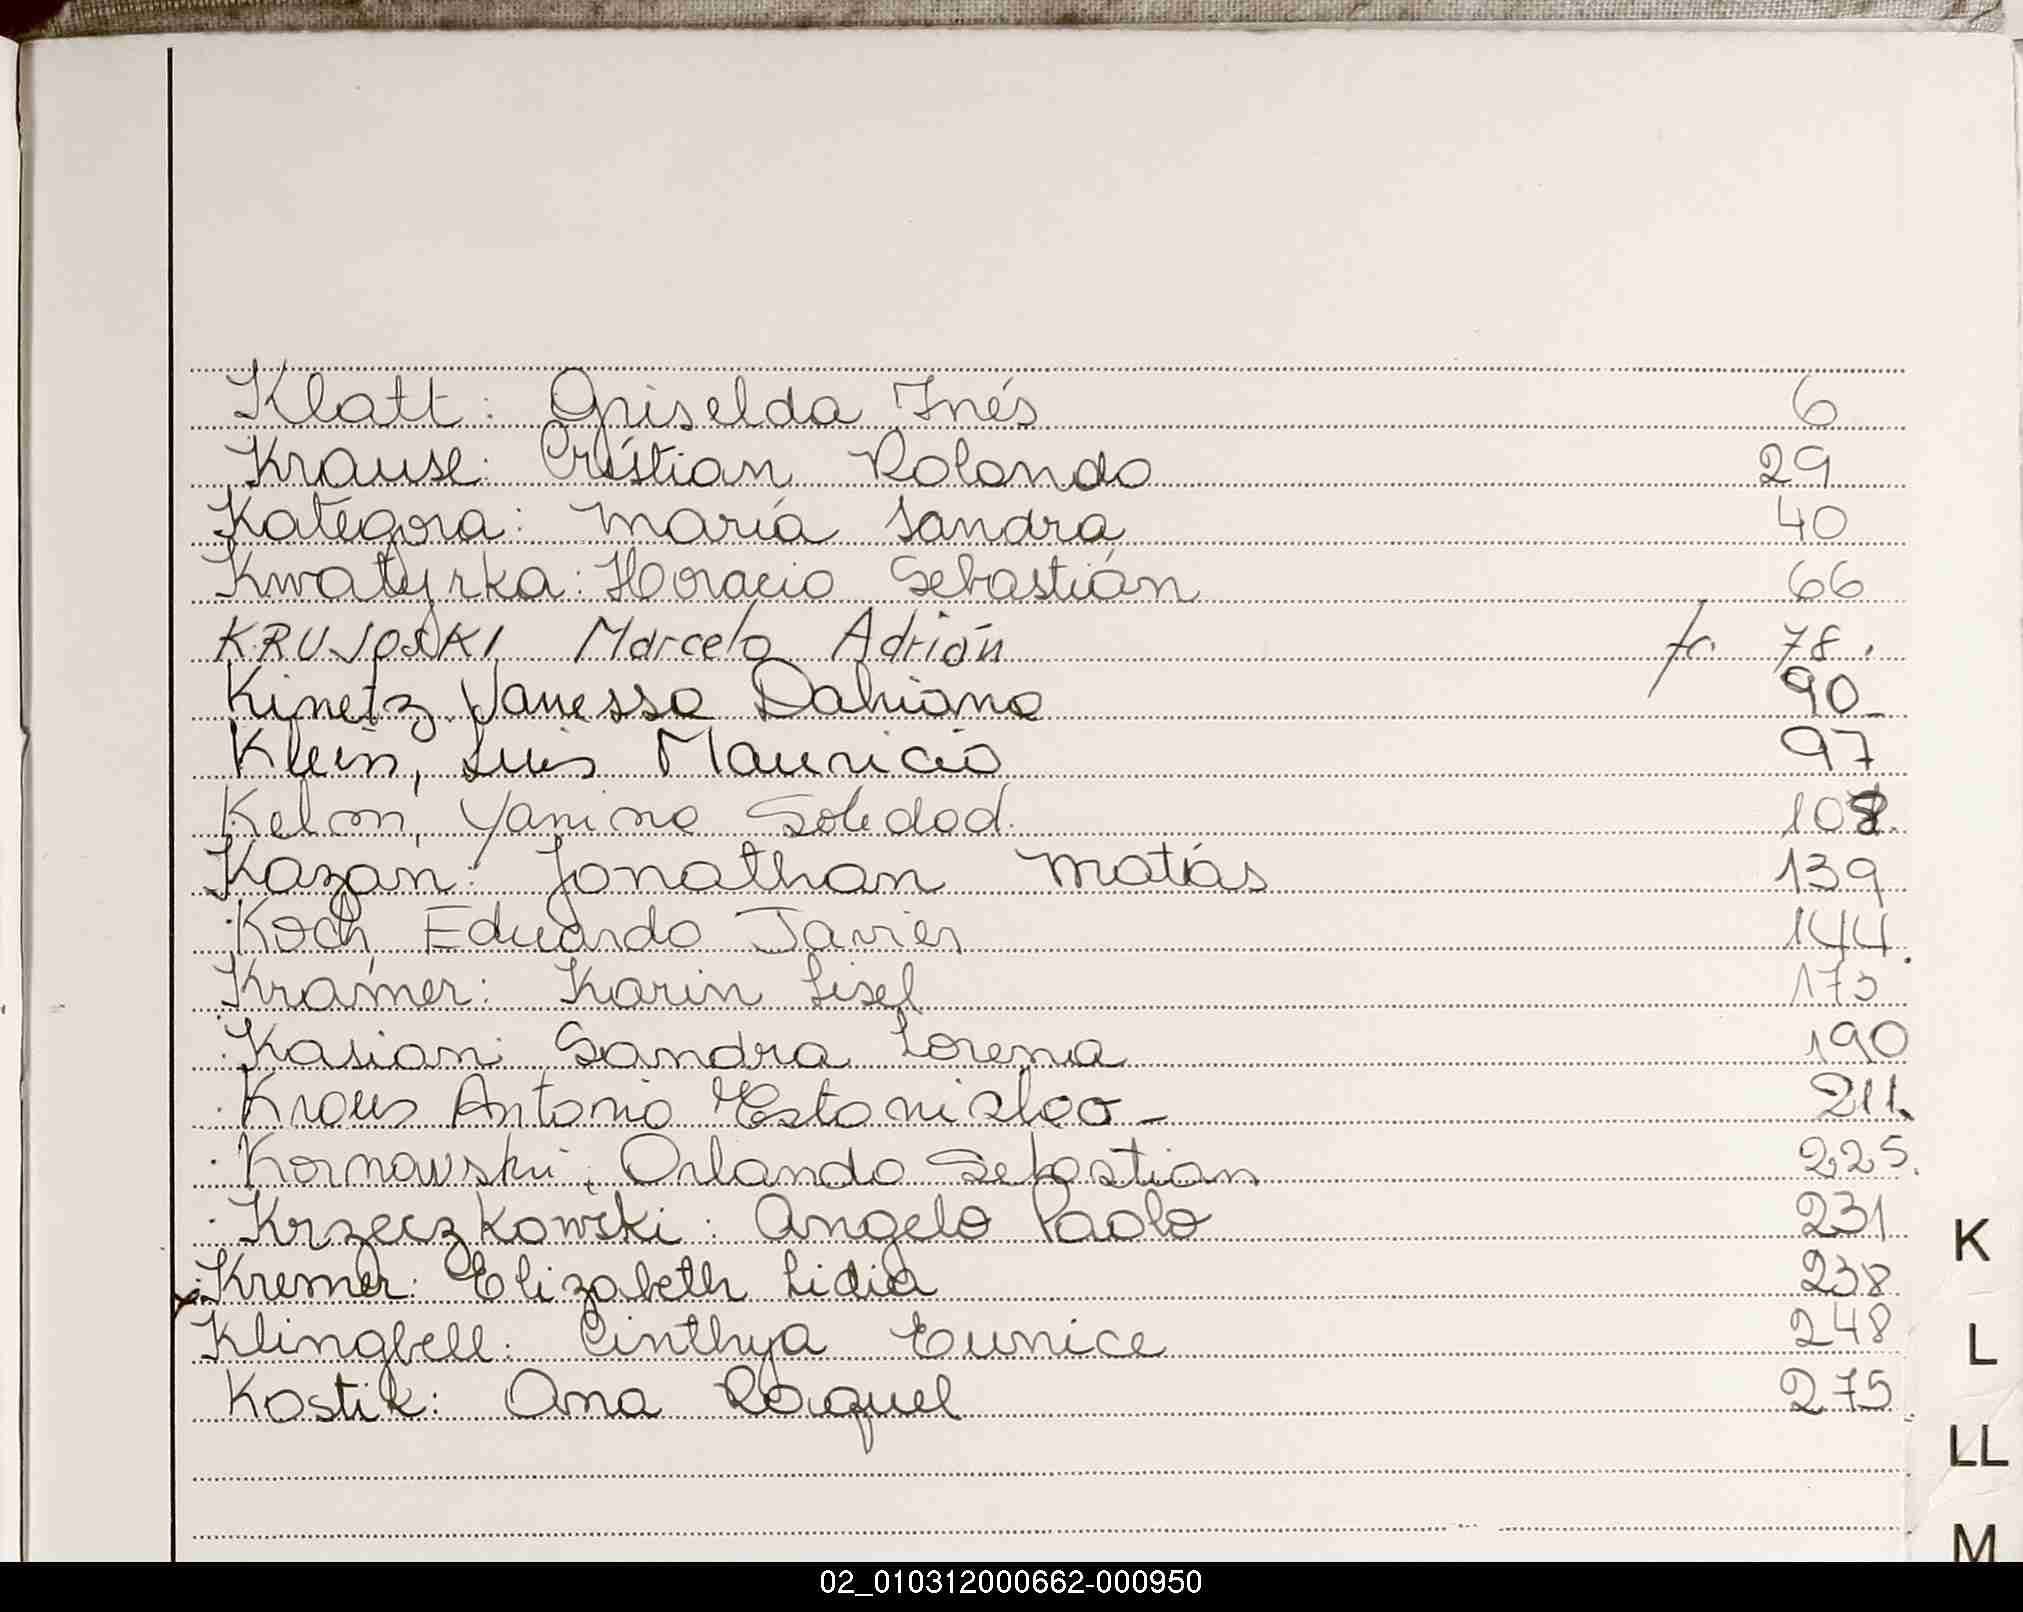 Klatt: Griselda Inés 6
Krause: Cristian Rolando 29
Kategora: María Sandra 40
Kwatyrka: Horacio Sebastián 66
KRUJOSKI, Marcelo Adrián 78.
Kinetz, Vanessa Dahiana 90
Klein, Luis Mauricio 97
Kelm, Yanina Soledad. 108.
Kazan: Jonathan Matías 139
Koch, Eduardo Javier 144.
Kramer: Karin Lisel 173
Kasian: Sandra Lorena 190
Kraus Antonio Estanislao - 211.
Kornowski, Orlando Sebastian 225.
Krzeczkowski: Angelo Paolo 231
Kremer: Elizabeth Lidia 238
K
Klingbell: Cinthya Eunice 248
L
Kostik: Ana Raquel 275
LL
M
02_010312000662-000950